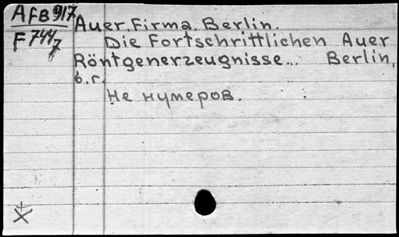 AfB 917
F 744/7
Auer. Firma. Berlin.
Die Fortschrittlichen Auer
Röntgenerzeugnisse... Berlin,
б.г.
Не нумеров.